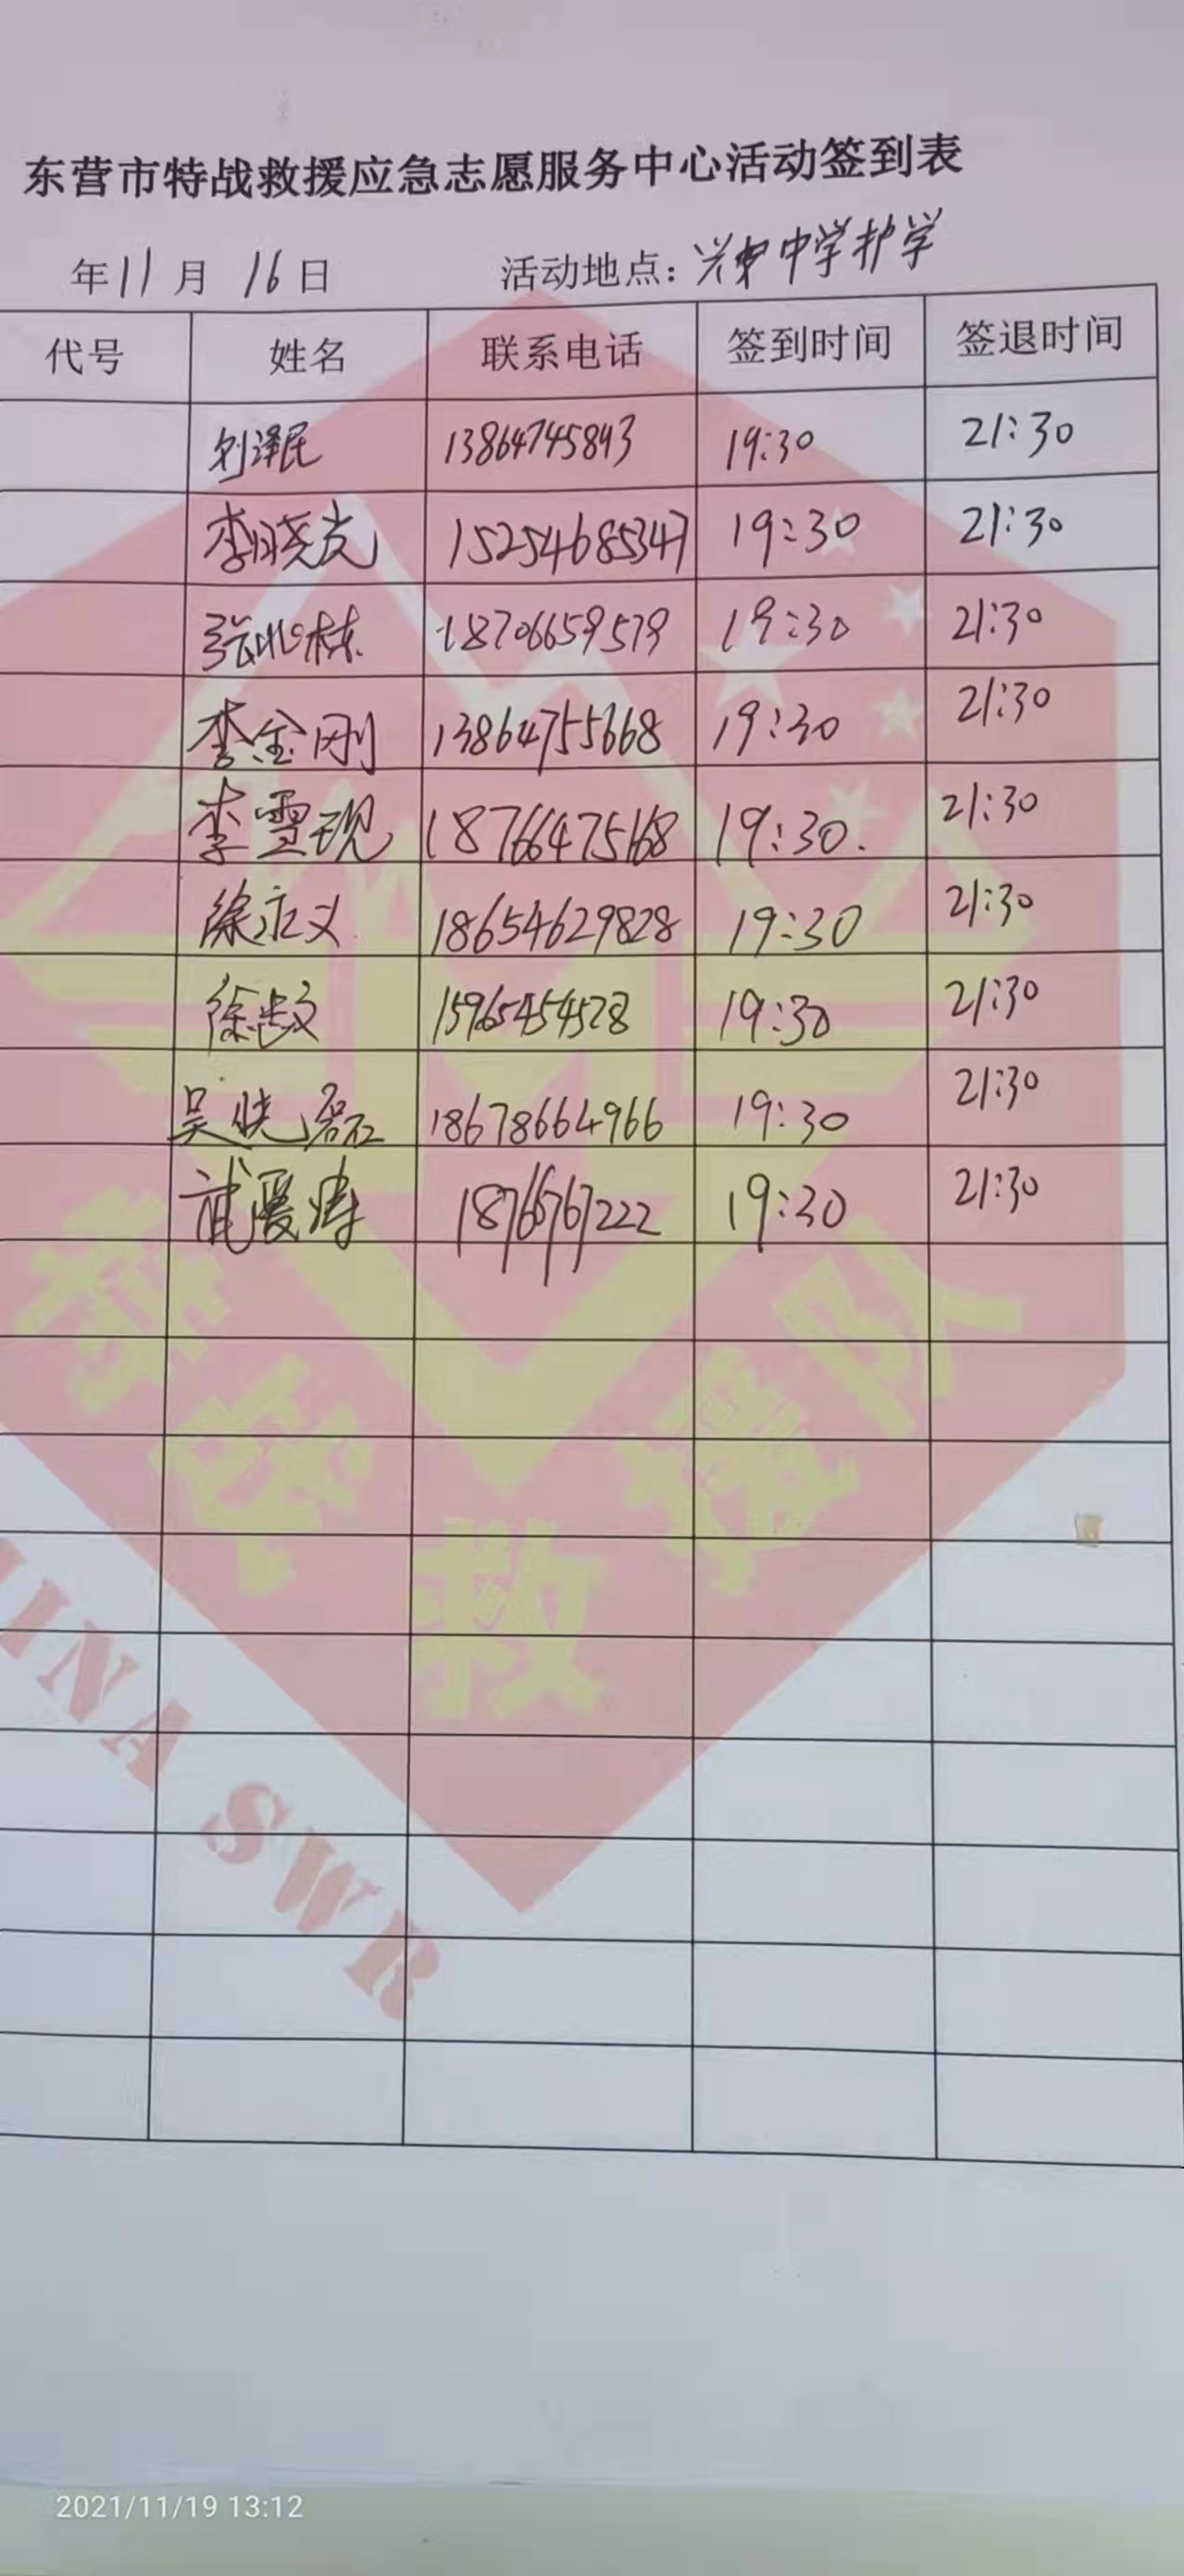 东营市特战救援应急志愿服务中心活动签到表
年11月 16日 活动地点：兴中学护学
代号 姓名 联系电话 签到时间 签退时间
刘泽民 13864745893 19:30 21:30
李晓光 15254685347 19:30 21:30
张兆栋 18706659579 19:30 21:30
李金刚 13864755668 19:30 21:30
李雪现 18766475168 19:30. 21:30
徐永义 18654629828 19:30 21:30
徐文 15965454578 19:30 21:30
吴晓磊 18678664966 19:30 21:30
武爱涛 1876767222 19:30 21:30
特战救援队
INA SWR
2021/11/19 13:12